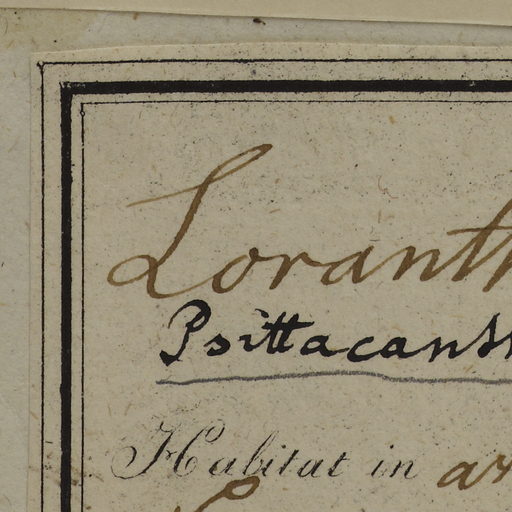 Loranth
Psittacanth
Habitat in